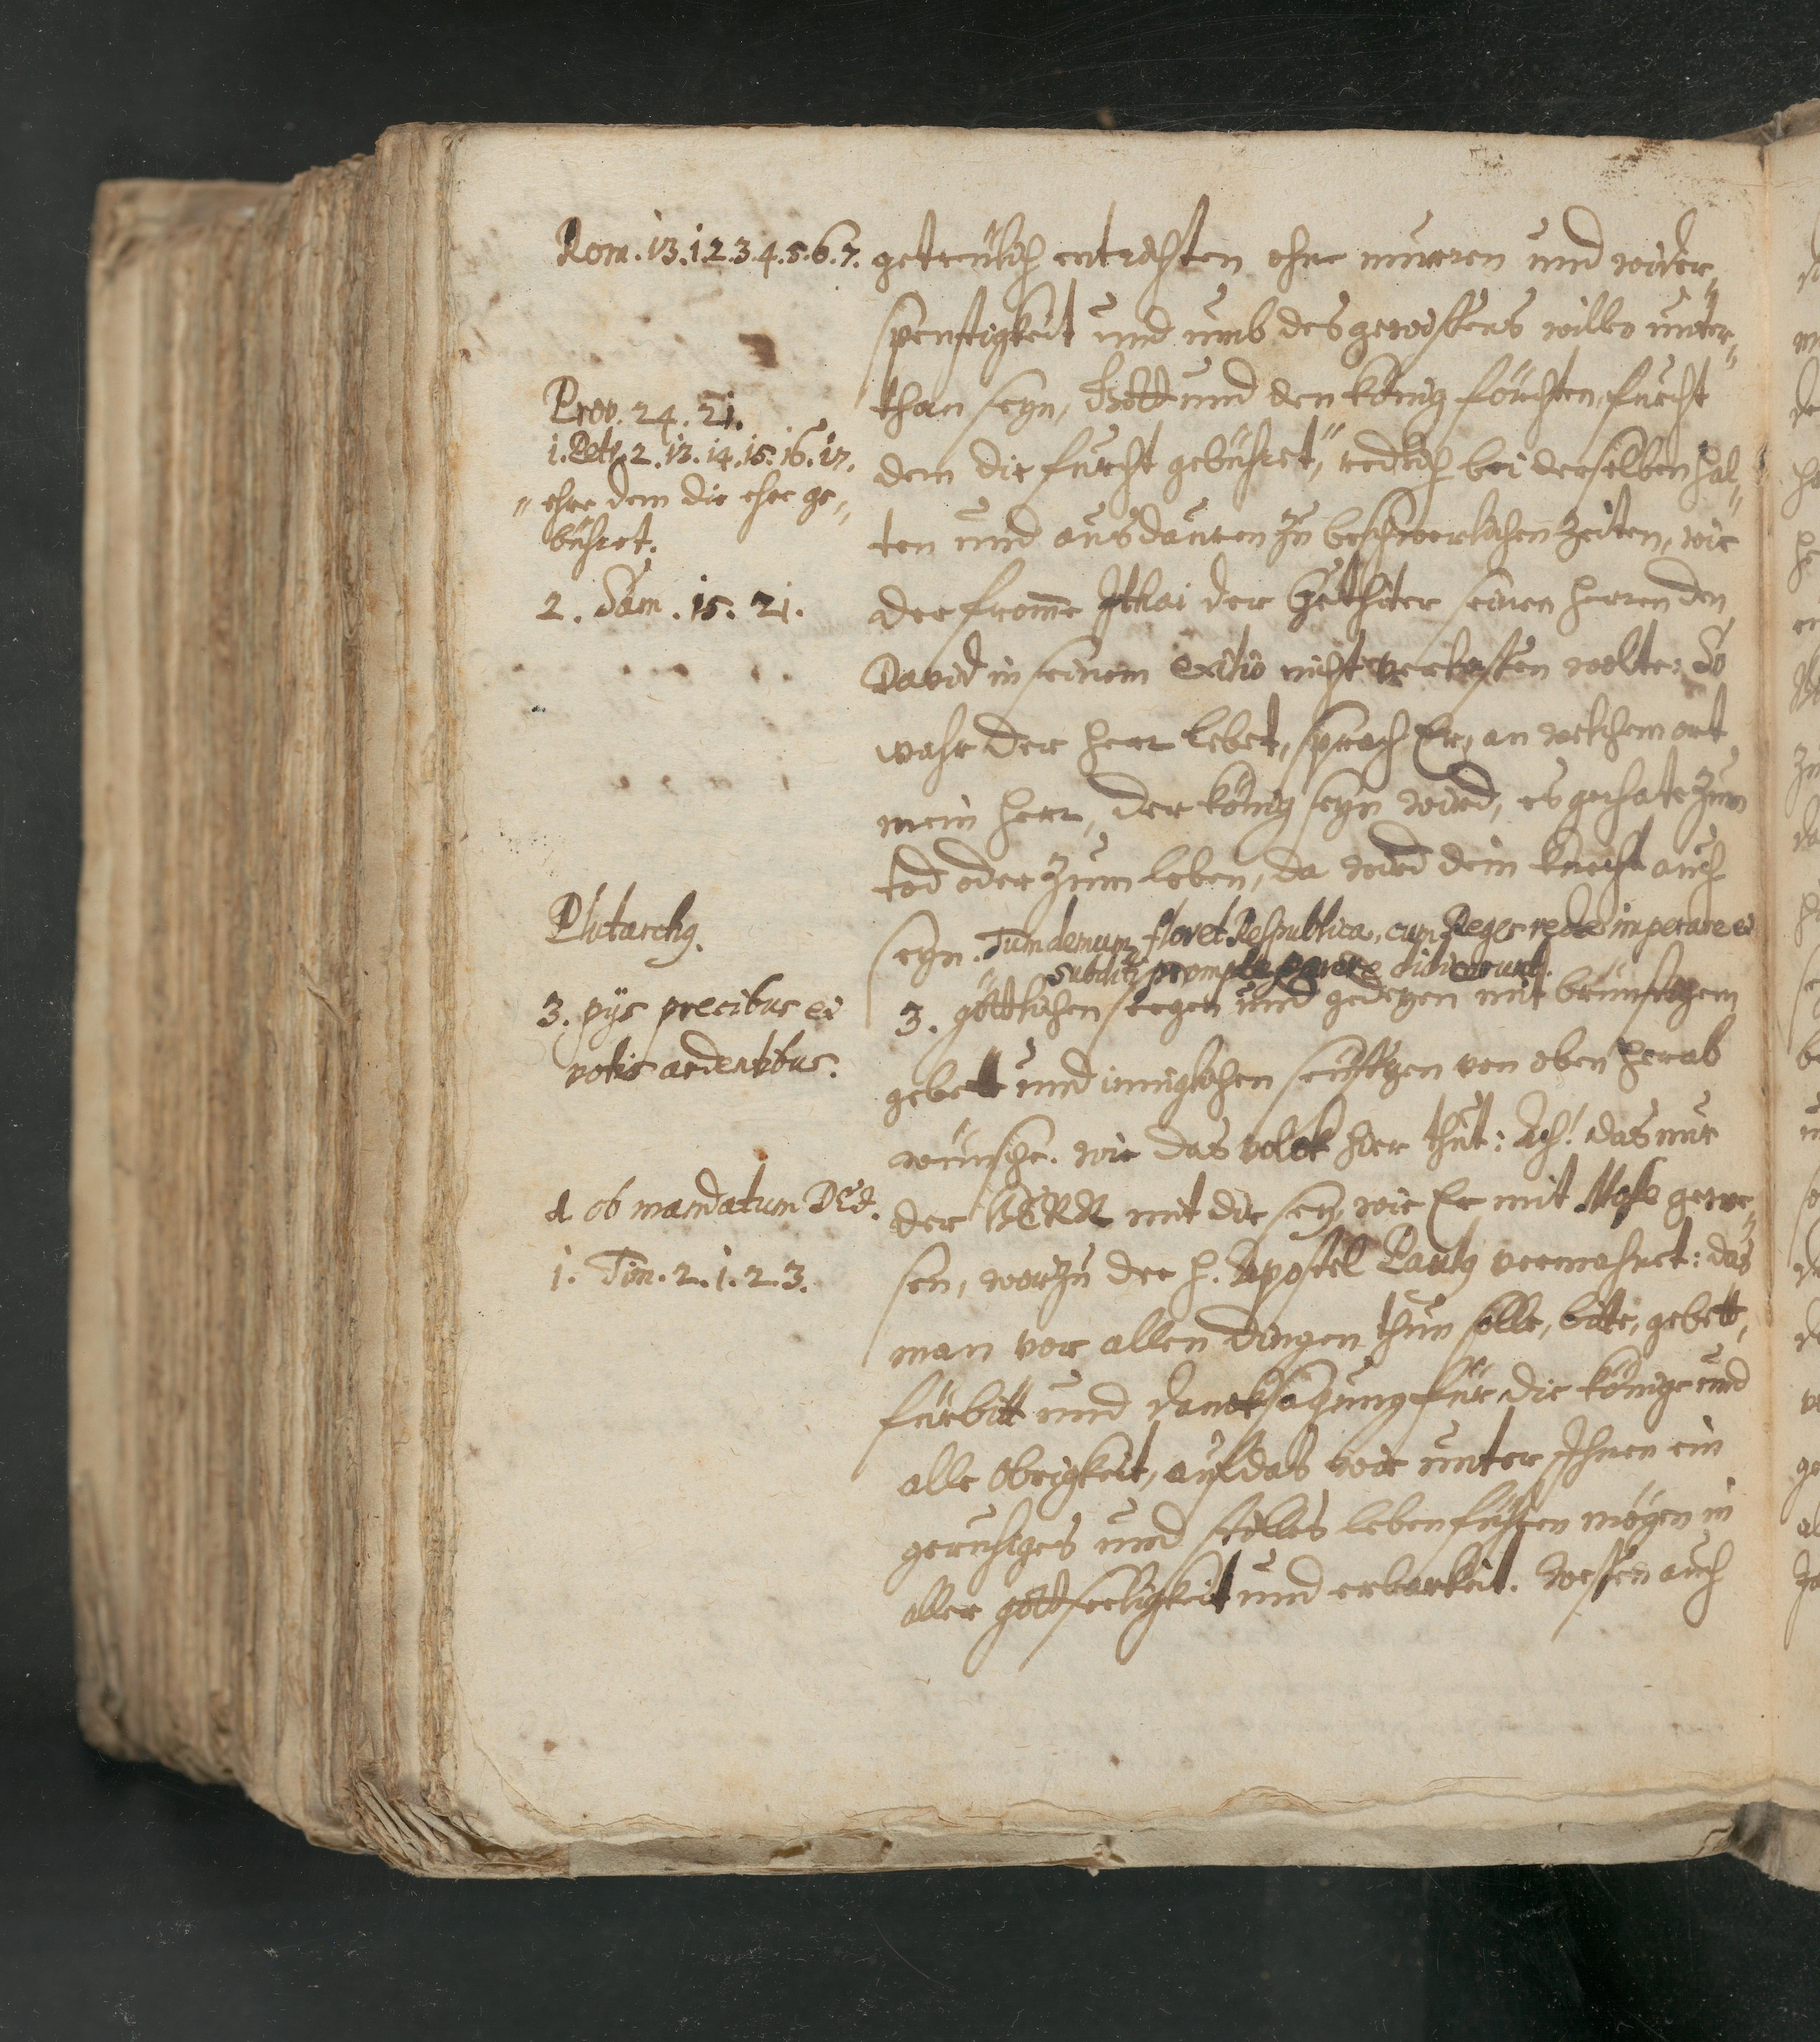 Rom. 13. 1. 2. 3. 4. 5. 6. 7.
Prov. 24. 21.
1. Petr. 2. 13. 14. 15. 16. 17.
" ehre dem die ehre ge„
bühret.
2. Sam. 15. 21.
Plutarchg.
3. pijs precibus et
votis ardentibus.
d ob mandatum DEi.
1. Tim. 2. 1. 2. 3.
getreülich entrichten ohne murren und wider„
spenstigkeit und umb des gewissens willen unter„
than seyn, Gott und den König förchten, furcht
dem die furcht gebühret," redlich bei derselben hal„
ten und ausdauren zu beschwerlichen Zeiten, wie
der from̄e Ithai der Gethiter seinen herren den
David in seinem exilio nicht verlassen wolte: So
wahr der herr lebet, sprach Er, an welchem ort
mein herr, der König seyn wird, es gerhate zum
tod oder zum leben, da wird dein Knecht auch
seyn. Tum demum floret Respublica, cum Reges recte imperare et
subditi prompte parere didicerunt.
3. göttlichen seegen und gedeyen mit brünstigem
gebett und inniglichen seüfftzen von oben herab
wünsche. wie das volck hier thut: Ach! das nur
der HERR mit dir sey, wie Er mit Mose gewe„
sen, worzu der h. Apostel Paulg vermahnet: das
man vor allen dingen thun solle, bitte, gebett,
fürbitt und dancksagung für die Könige und
alle Obrigkeit, auf das wir unter Ihnen ein
geruhiges und stilles leben führen mögen in
aller gottseeligkeit und erbarkeit. dessen auch